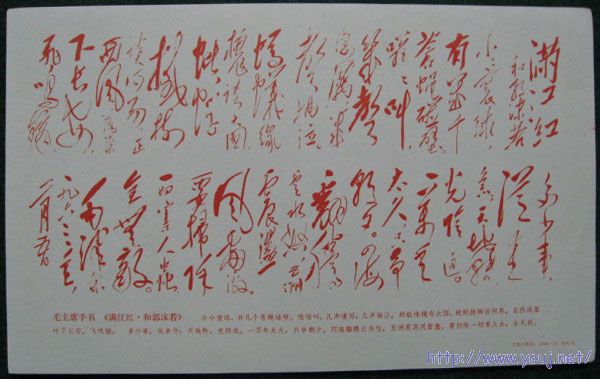 满江红
和郭沫若
小小寰球，
有几个
苍蝇碰壁。
嗡嗡叫
几声
凄厉几
声抽泣。
蚂蚁缘
槐夸大国
蚍蜉
撼树
谈何易 正
西风落叶
下长安
飞鸣镝。
多少事，
从来急
天地转
光阴迫
一万年
太久只争
朝夕。四海
翻腾
云水怒五洲
震荡
风雷激
要扫除
一切害人虫
全无敌。
毛泽东
一九六三年
二月五日
毛主席手书《满江红·和郭沫若》 小小寰球，有几个苍蝇碰壁。嗡嗡叫，几声凄厉，几声抽泣。蚂蚁缘槐夸大国，蚍蜉撼树谈何易。正西风落
叶下长安，飞鸣镝。 多少事，从来急；天地转，光阴迫。一万年太久，只争朝夕。四海翻腾云水怒，五洲震荡风雷激。要扫除一切害人虫，全无敌。
http://www.youj.net/